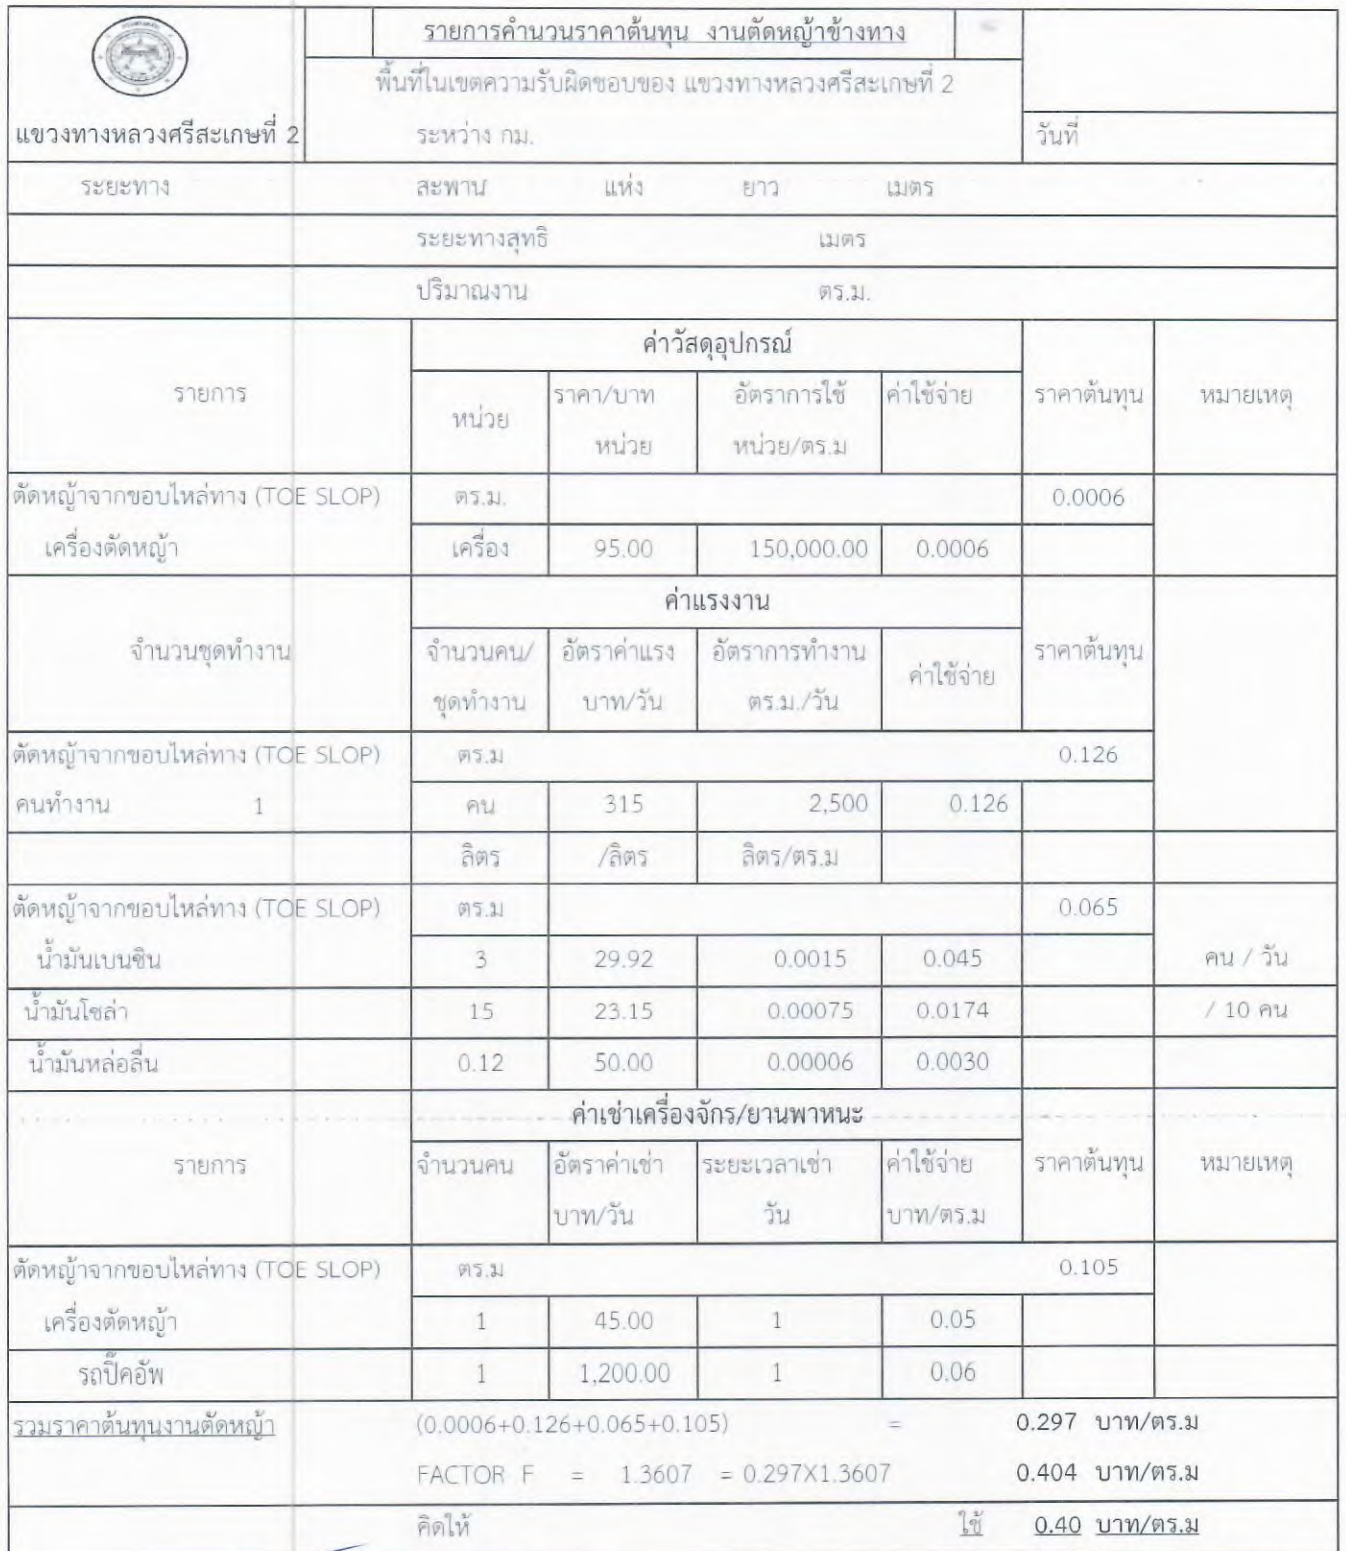 รายการคำนวนราคาต้นทุน งานตัดหญ้าข้างทาง
พื้นที่ในเขตความรับผิดชอบของ แขวงทางหลวงศรีสะเกษที่ 2
แขวงทางหลวงศรีสะเกษที่ 2 ระหว่าง กม. วันที่
ระยะทาง สะพาน แห่ง ยาว เมตร
ระยะทางสุทธิ เมตร
ปริมาณงาน ตร.ม.
ค่าวัสดุอุปกรณ์
รายการ หน่วย ราคา/บาท อัตราการใช้ ค่าใช้จ่าย ราคาต้นทุน หมายเหตุ
หน่วย หน่วย/ตร.ม
ตัดหญ้าจากขอบไหล่ทาง (TOE SLOP) ตร.ม. 0.0006
เครื่องตัดหญ้า เครื่อง 95.00 150,000.00 0.0006
ค่าแรงงาน
จำนวนชุดทำงาน จำนวนคน/ อัตราค่าแรง อัตราการทำงาน ค่าใช้จ่าย ราคาต้นทุน
ชุดทำงาน บาท/วัน ตร.ม./วัน
ตัดหญ้าจากขอบไหล่ทาง (TOE SLOP) ตร.ม 0.126
คนทำงาน 1 คน 315 2,500 0.126
ลิตร /ลิตร ลิตร/ตร.ม
ตัดหญ้าจากขอบไหล่ทาง (TOE SLOP) ตร.ม 0.065
น้ำมันเบนซิน 3 29.92 0.0015 0.045 คน / วัน
น้ำมันโซล่า 15 23.15 0.00075 0.0174 / 10 คน
น้ำมันหล่อลื่น 0.12 50.00 0.00006 0.0030
ค่าเช่าเครื่องจักร/ยานพาหนะ
รายการ จำนวนคน อัตราค่าเช่า ระยะเวลาเช่า ค่าใช้จ่าย ราคาต้นทุน หมายเหตุ
บาท/วัน วัน บาท/ตร.ม
ตัดหญ้าจากขอบไหล่ทาง (TOE SLOP) ตร.ม 0.105
เครื่องตัดหญ้า 1 45.00 1 0.05
รถปิ๊คอัพ 1 1,200.00 1 0.06
รวมราคาต้นทุนงานตัดหญ้า (0.0006+0.126+0.065+0.105) = 0.297 บาท/ตร.ม
FACTOR F = 1.3607 = 0.297X1.3607 0.404 บาท/ตร.ม
คิดให้ ใช้ 0.40 บาท/ตร.ม